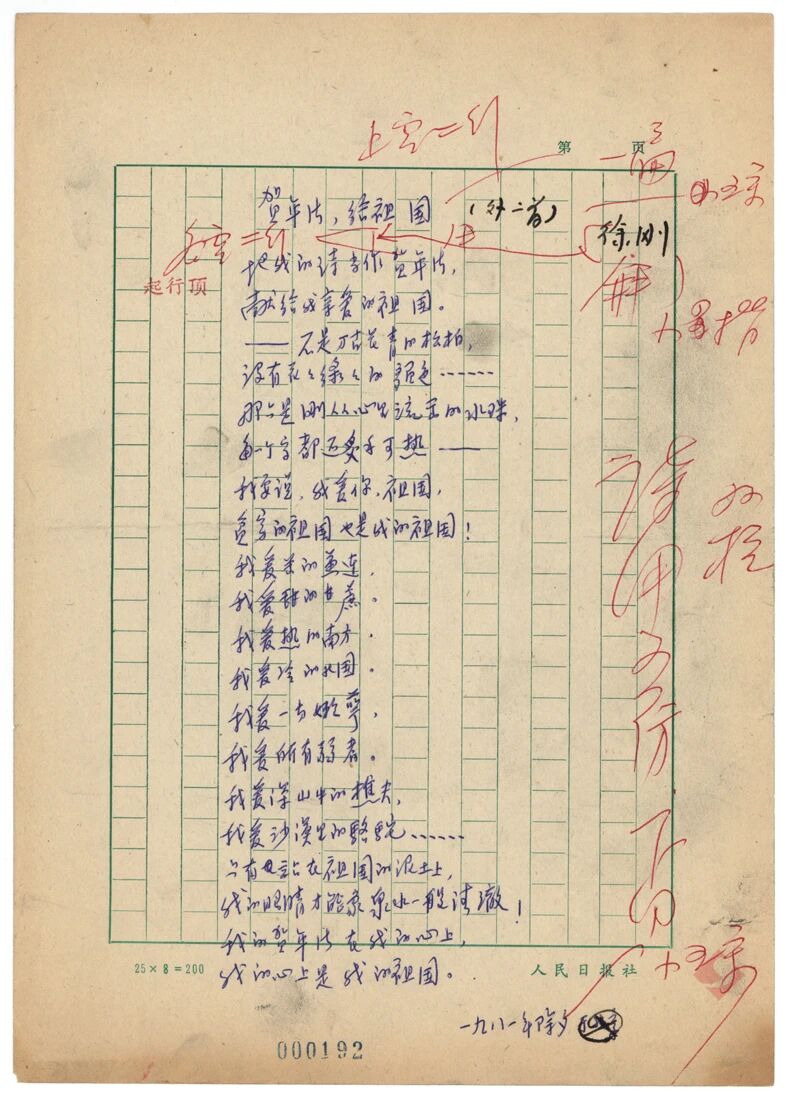 上空二行
第 页
一篇
小五宋
贺年片,给祖国
(外二首)
徐刚
空二行
起行顶
把我的诗当作贺年片,
献给我亲爱的祖国。
—— 不是万古长青的松柏,
没有花花绿绿的颜色……
那只是刚从心里流出的水珠,
每一个字都还炙手可热——
我要说,我爱你,祖国,
贫穷的祖国也是我的祖国!
我爱苦的黄连,
我爱甜的甘蔗。
我爱热的南方,
我爱冷的北国。
我爱一切嫩芽,
我爱所有弱者。
我爱深山中的樵夫,
我爱沙漠里的骆驼……
只有站在祖国的泥土上,
我的眼睛才能象泉水一般清澈!
我的贺年片在我的心上,
我的心上是我的祖国。
25×8=200
人民日报社
一九八一年除夕
000192
小五宋